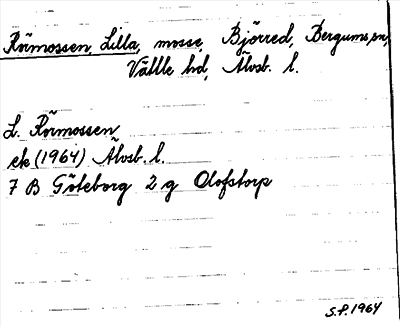 Rörmossen, Lilla, mosse, Björred, Bergums sn,
Vättle hd, Älvsb. l.
L. Rörmossen
ek (1964) Älvsb. l.
7 B Göteborg 2 g Olofstorp
S.P. 1964